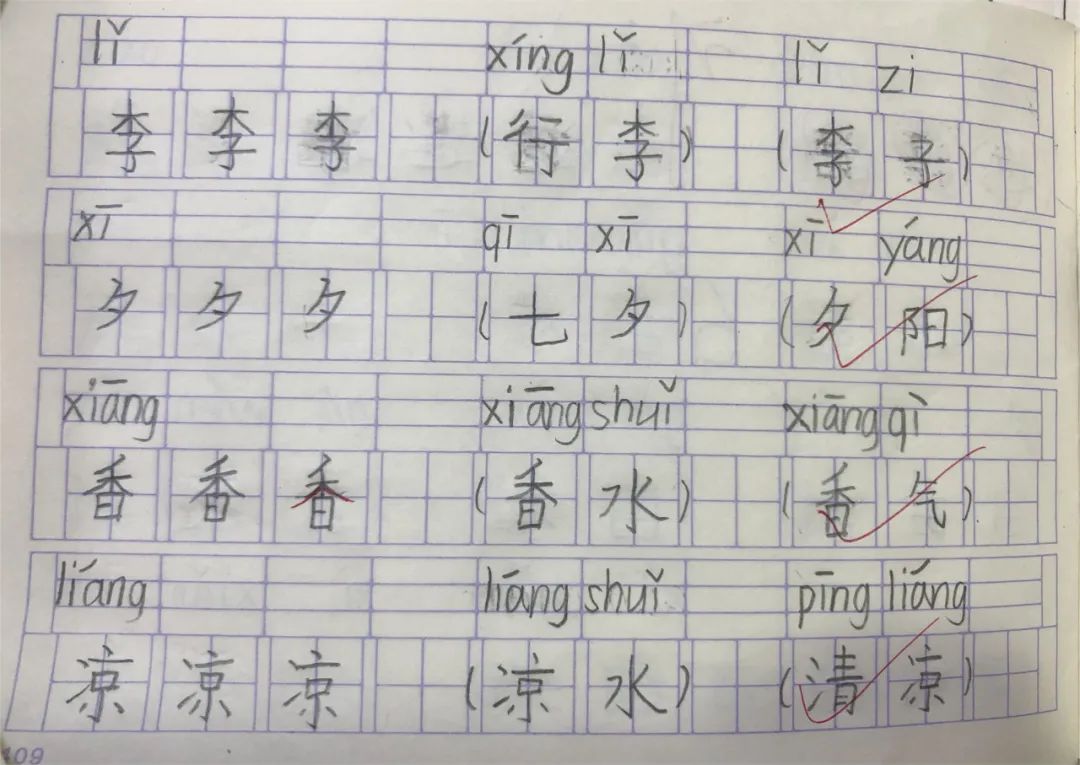 lǐ xíng lǐ lǐ zi
李 李 李 (行 李) (李 子)
xī qī xī xī yáng
夕 夕 夕 (七 夕) (夕 阳)
xiāng xiāng shuǐ xiāng qì
香 香 香 (香 水) (香 气)
liáng liáng shuǐ pīng liáng
凉 凉 凉 (凉 水) (清 凉)
109